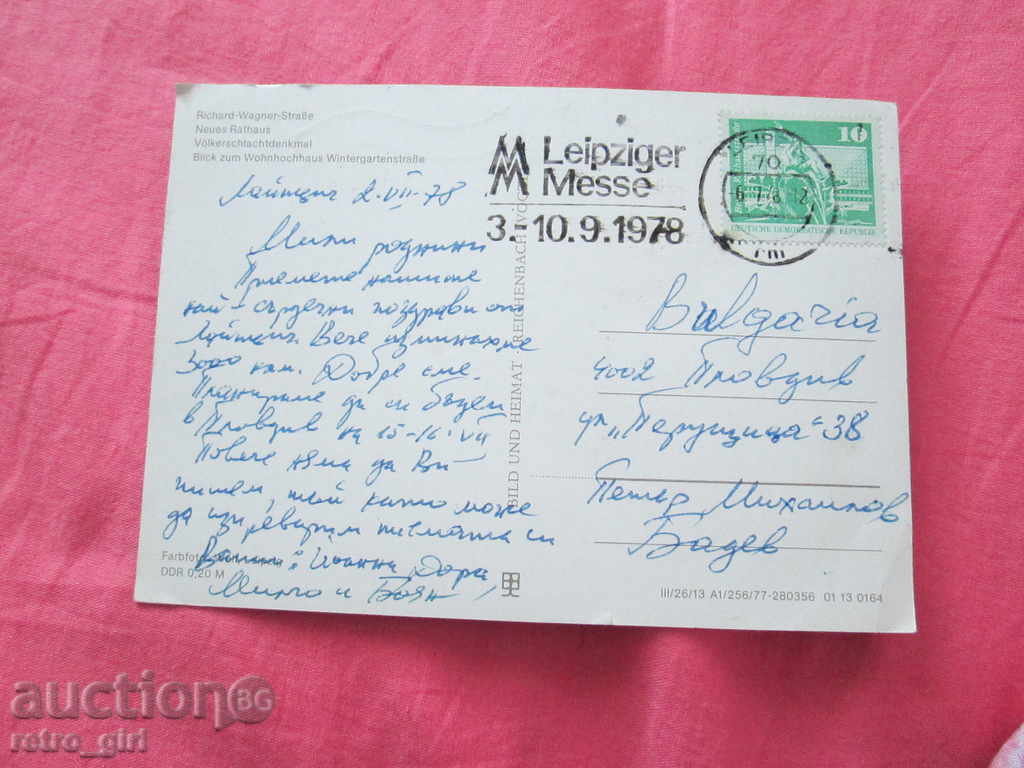 Richard-Wagner-Straße
Neues Rathaus
Völkerschlachtdenkmal
Blick zum Wohnhochhaus Wintergartenstraße
Leipziger
Messe
3.-10.9.1978
70
10
DEUTSCHE DEMOKRATISCHE REPUBLIK
Лайпциг 2-VII-78
Мили роднини
Приемете нашите
най-сърдечни поздрави от
Лайпциг. Вече изминахме
3000 км. Добре сме.
Планираме да си бъдем
в Пловдив на 15-16 VII
Повече няма да Ви
пишем, тъй като може
да изпреварим писмата си
Вашите: Йоанна, Дора,
Минчо и Боян
BILD UND HEIMAT · REICHENBACH
Bulgaria
4002 Пловдив
ул. „Перущица" 38
Петър Михайлов
Бадев
DDR 0,20 M
III/26/13 A1/256/77-280356 01 13 0164
auctionBG
retro_girl